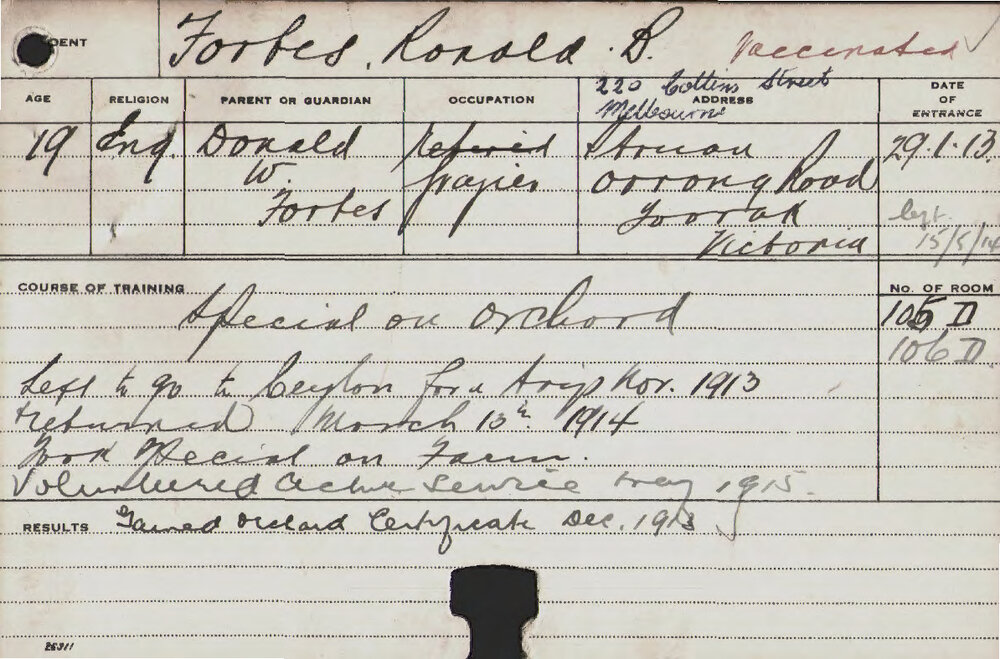 DENT Forbes, Ronald B. Vaccinated ✓
220 Collins Street
Melbourne
AGE RELIGION PARENT OR GUARDIAN OCCUPATION ADDRESS DATE OF ENTRANCE
19 Eng. Donald Retired Struan 29.1.13.
W. Grazier Orrong Road
Forbes Toorak left
Victoria 15/5/14
COURSE OF TRAINING No. OF ROOM
Special on Orchard 105 D
106 D
Left to go to Ceylon for a trip Nov. 1913
Returned March 13th. 1914
Took Special on Farm.
Volunteered active service May 1915.
RESULTS Gained Orchard Certificate Dec. 1913
26311